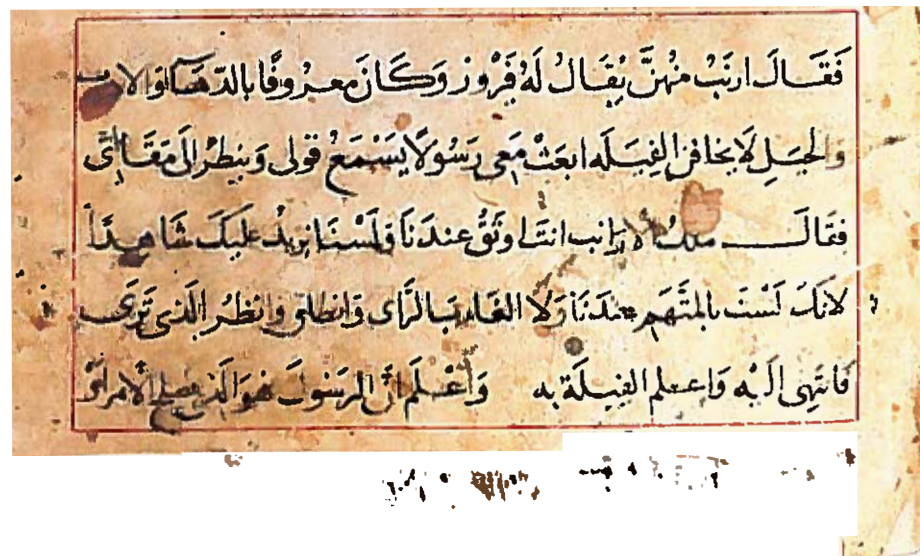 فَقَالَ ارنَبٌ منهنَّ يُقَالُ لَهُ فَيْرُوز وَكَانَ مَعرُوفًا بالدّهَا والادب
والحِيَلِ لَا يخافن الفِيَلَه ابعَثْ مَعِي رَسُولًا يَسْمَعُ قولى وَينظرُ الَى مَقَالتى
فقَالَـــ ملك الارانب انتَ اوثَقُ عندَنَا وَلَسْنَا نريدُ عليكَ شَاهِدًا
لانكَ لَسْتَ بالمتَهَمِ عندَنَا وَلَا بالرَّاى وَانطلق وانظر الَّذى تَرَى
فَانتهِى الَيْه وَاعـلم الفِيلَةِ به وَاعْـلَم انَّ الرسُولَ هوَ الَّذى الامر اَوْ